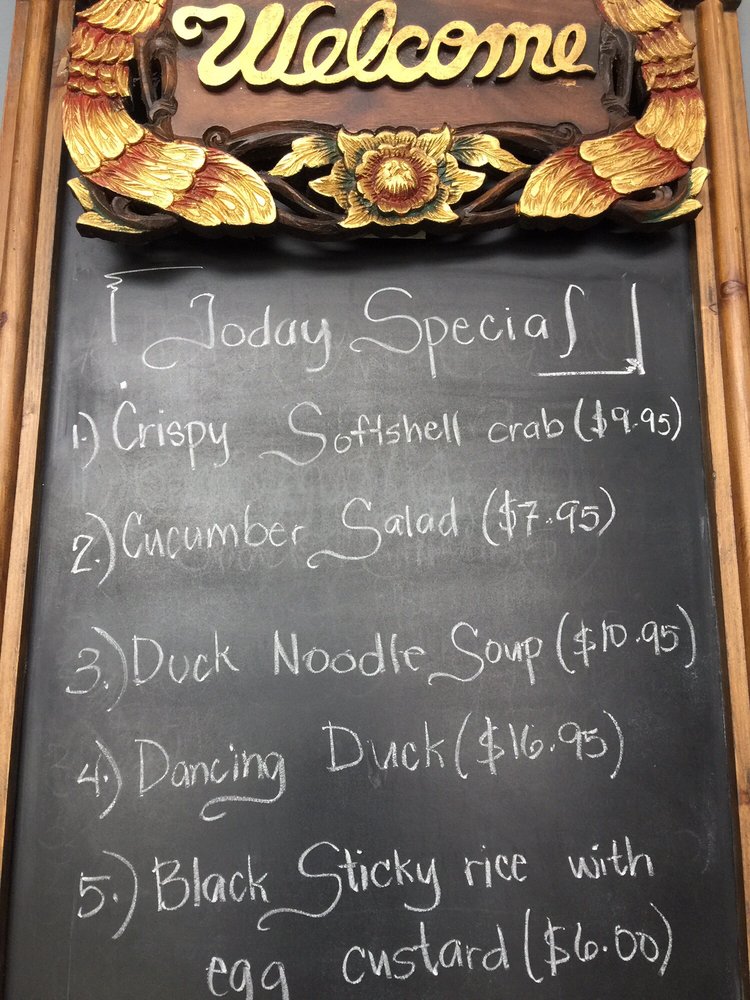 Welcome
Today Special
1.) Crispy Softshell crab ($9.95)
2.) Cucumber Salad ($7.95)
3.) Duck Noodle Soup ($10.95)
4.) Dancing Duck ($16.95)
5.) Black Sticky rice with
egg custard ($6.00)